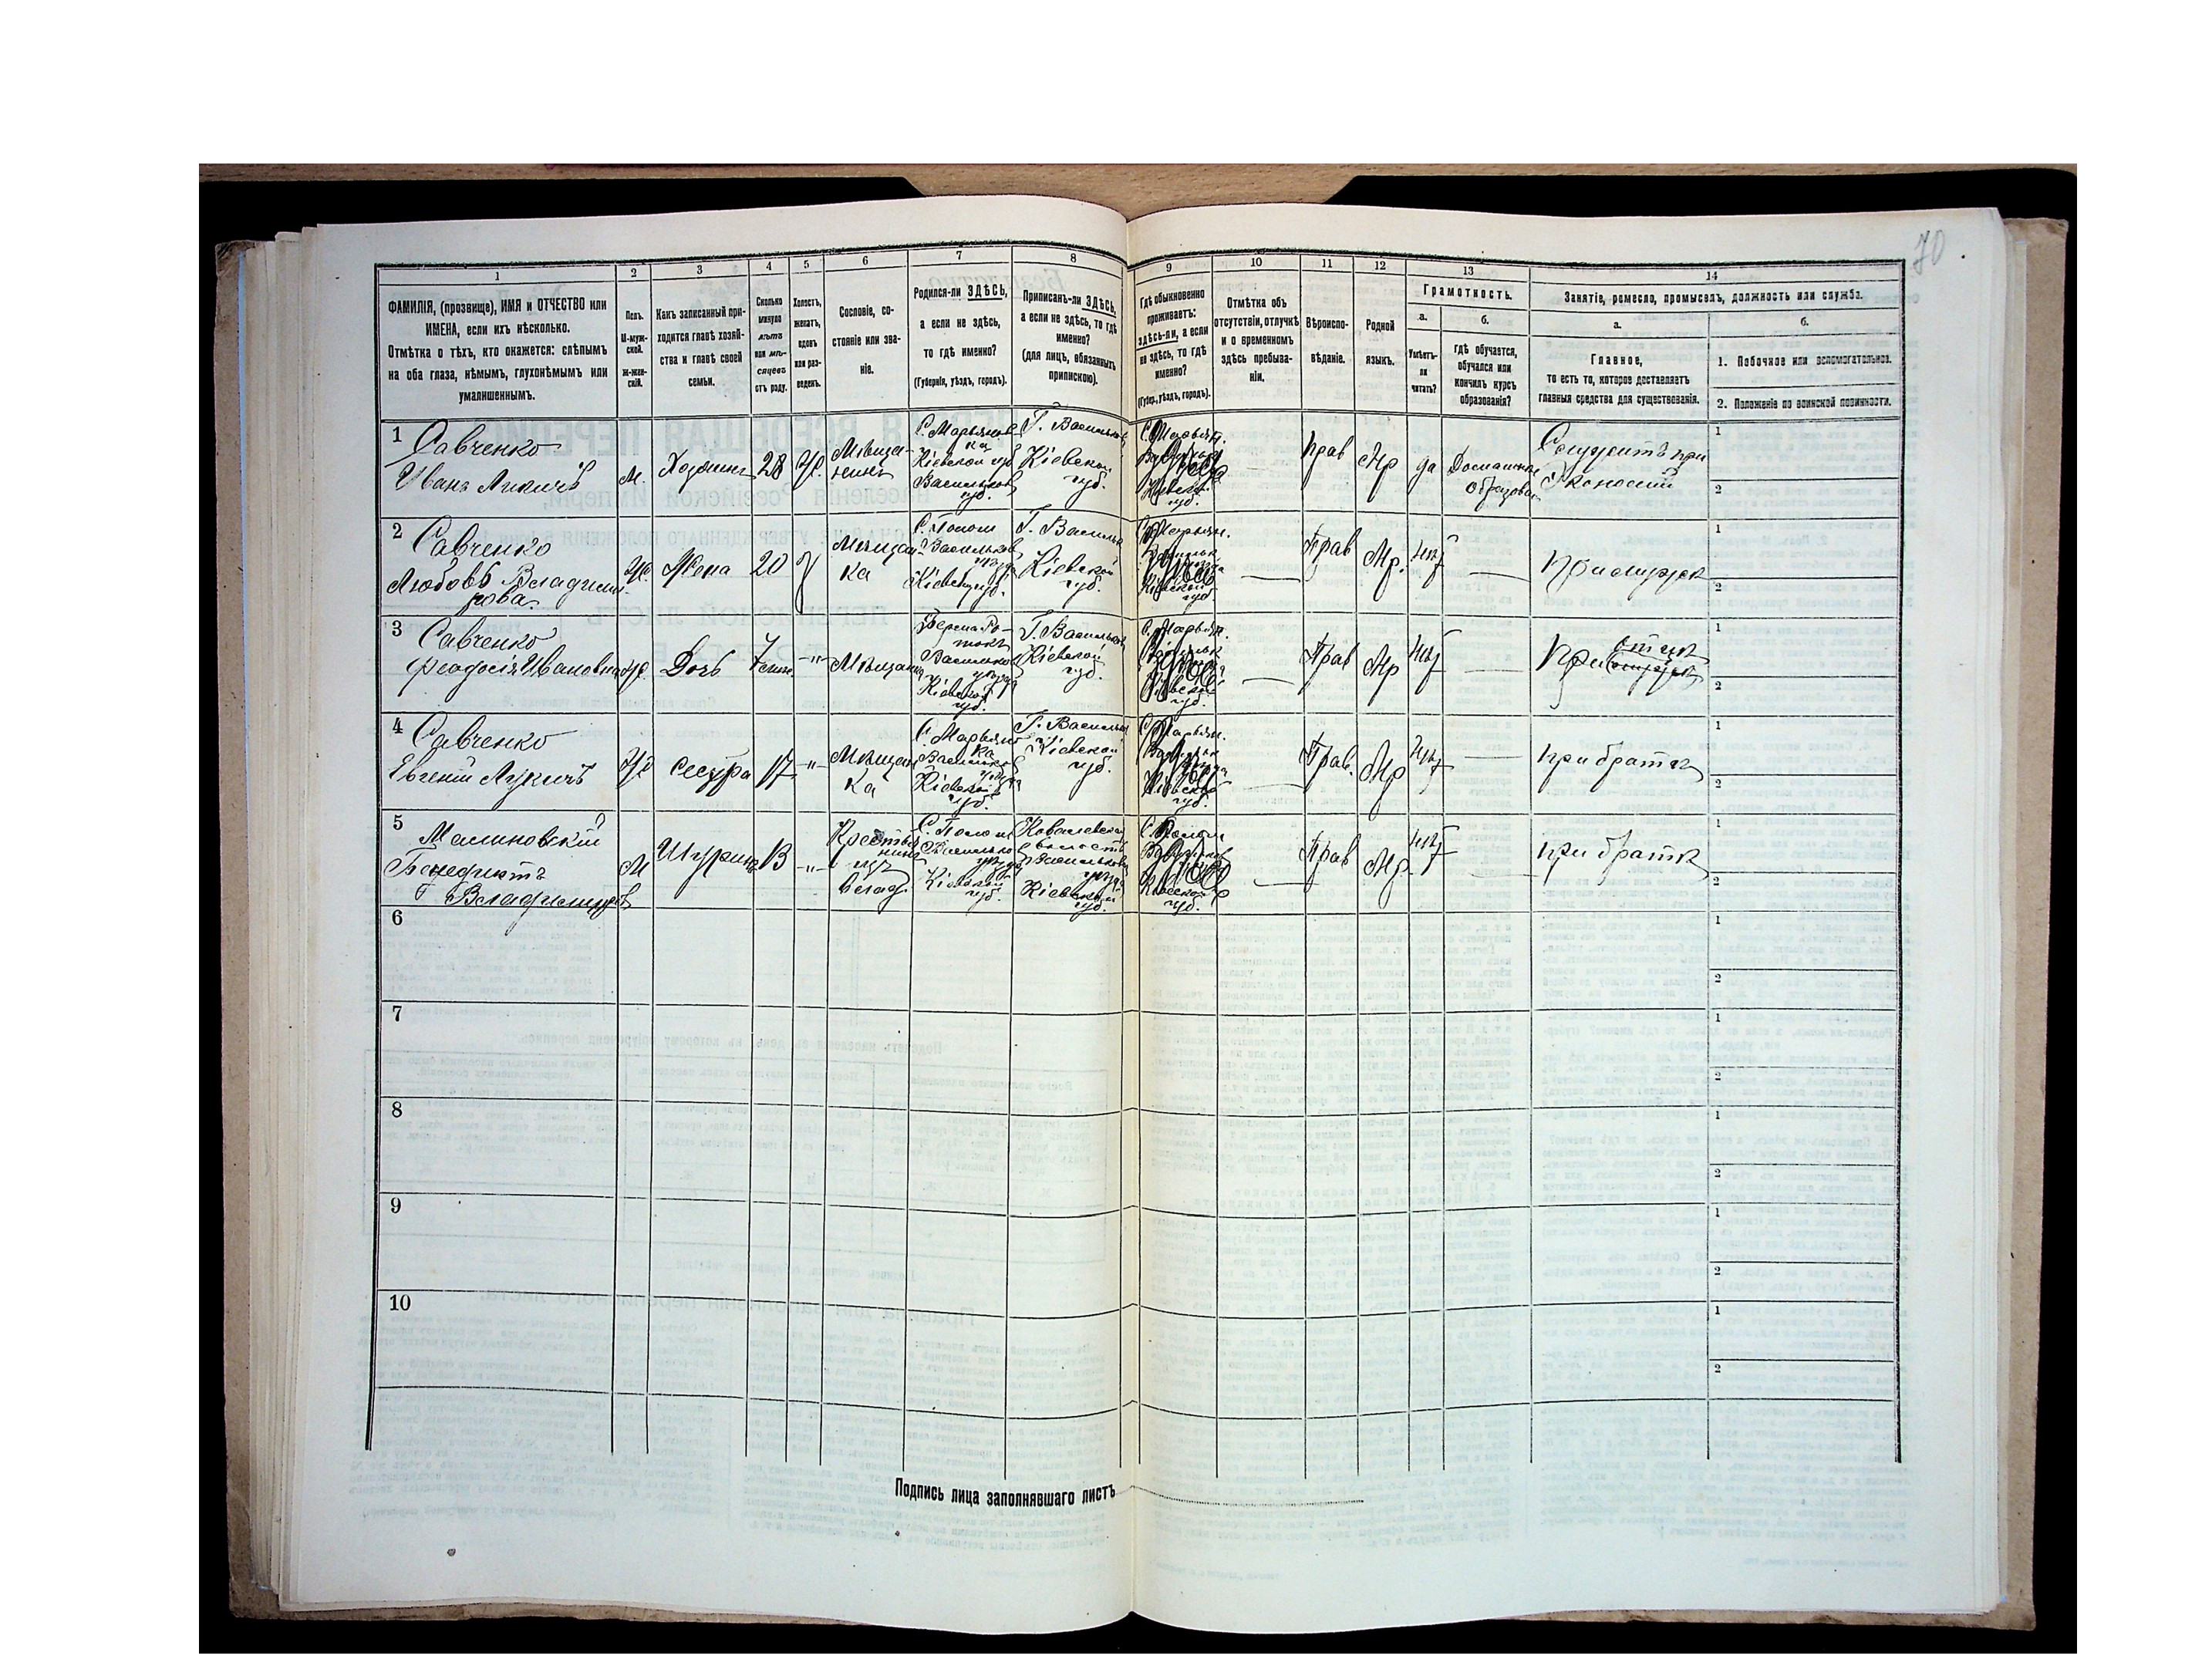 70
1 2 3 4 5 6 7 8 9 10 11 12 13 14
ФАМИЛІЯ, (прозвище), ИМЯ и ОТЧЕСТВО или
ИМЕНА, если ихъ нѣсколько.
Отмѣтка о тѣхъ, кто окажется: слѣпымъ
на оба глаза, нѣмымъ, глухонѣмымъ или
умалишеннымъ.
Полъ.
М-муж-
ской.
ж-жен-
скій.
Какъ записанный при-
ходится главѣ хозяй-
ства и главѣ своей
семьи.
Сколько
минуло
лѣтъ
или мѣ-
сяцевъ
отъ роду.
Холостъ,
женатъ,
вдовъ
или раз-
веденъ.
Сословіе, со-
стояніе или зва-
ніе.
Родился-ли ЗДѢСЬ,
а если не здѣсь,
то гдѣ именно?
(Губернія, уѣздъ, городъ).
Приписанъ-ли ЗДѢСЬ,
а если не здѣсь, то гдѣ
именно?
(для лицъ, обязанныхъ
припискою).
Гдѣ обыкновенно
проживаетъ:
здѣсь-ли, а если
не здѣсь, то гдѣ
именно?
(Губер., уѣздъ, городъ).
Отмѣтка объ
отсутствіи, отлучкѣ
и о временномъ
здѣсь пребыва-
ніи.
Вѣроиспо-
вѣданіе.
Родной
языкъ.
Грамотность.
а.
Умѣетъ-
ли
читать?
б.
Гдѣ обучается,
обучался или
кончилъ курсъ
образованія?
Занятіе, ремесло, промыселъ, должность или служба.
а.
Главное,
то есть то, которое доставляетъ
главныя средства для существованія.
б.
1. Побочное или вспомогательное.
2. Положеніе по воинской повинности.
1
Савченко
Иванъ Лукичъ
м.
Хозяинъ
28
Ж.
Мѣща-
нинъ
С. Марьянов
ка
Кіевской губ
Васильков
Г. Васильков
Кіевской
губ.
С. Марьян.
губ.
прав
Мр
да
Домашнее
образован
Служитъ при
Экономіи
1
2
2
Савченко
Любовь Владими
рова
Ж.
Жена
20
Мѣщан
ка
Васильков
Кіевск губ.
Г. Василько
Кіевской
губ.
Марьян.
губ
Прав
Мр.
нѣт
При мужѣ
1
2
3
Савченко
Феодосія Ивановна
Ж.
Дочь
7
-"-
Мѣщанка
Васильков
уѣзда
Кіевской
губ.
Г. Васильков
Кіевской
губ.
С. Марьян.
губ.
Прав
Мр
нѣт
При отцѣ
1
2
4
Савченко
Евгеній Лукичъ
Ж
сестра
17
-"-
Мѣщан
ка
С. Марьяно
ка
Васильков
уѣзда
Кіевской
губ.
Г. Василько
Кіевской
губ.
С Марьян.
губ.
Прав.
Мр
нѣт
при братѣ
1
2
5
Малиновскій
Бенедиктъ
Владимировъ
М
Шуринъ
13
-"-
Кіевской
губ.
Ковалевской
волости
Васильков
уѣзда
Кіевской
губ.
губ.
Прав
Мр
нѣт
при братѣ
1
2
6
1
2
7
1
2
8
1
2
9
1
2
10
1
2
Подпись лица заполнявшаго листъ